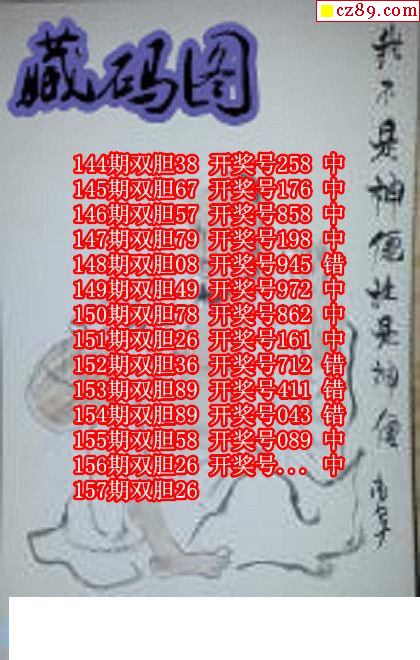 cz89.com
藏码图
144期双胆38 开奖号258 中
145期双胆67 开奖号176 中
146期双胆57 开奖号858 中
147期双胆79 开奖号198 中
148期双胆08 开奖号945 错
149期双胆49 开奖号972 中
150期双胆78 开奖号862 中
151期双胆26 开奖号161 中
152期双胆36 开奖号712 错
153期双胆89 开奖号411 错
154期双胆89 开奖号043 错
155期双胆58 开奖号089 中
156期双胆26 开奖号... 中
157期双胆26
我不是神仙就是神仙